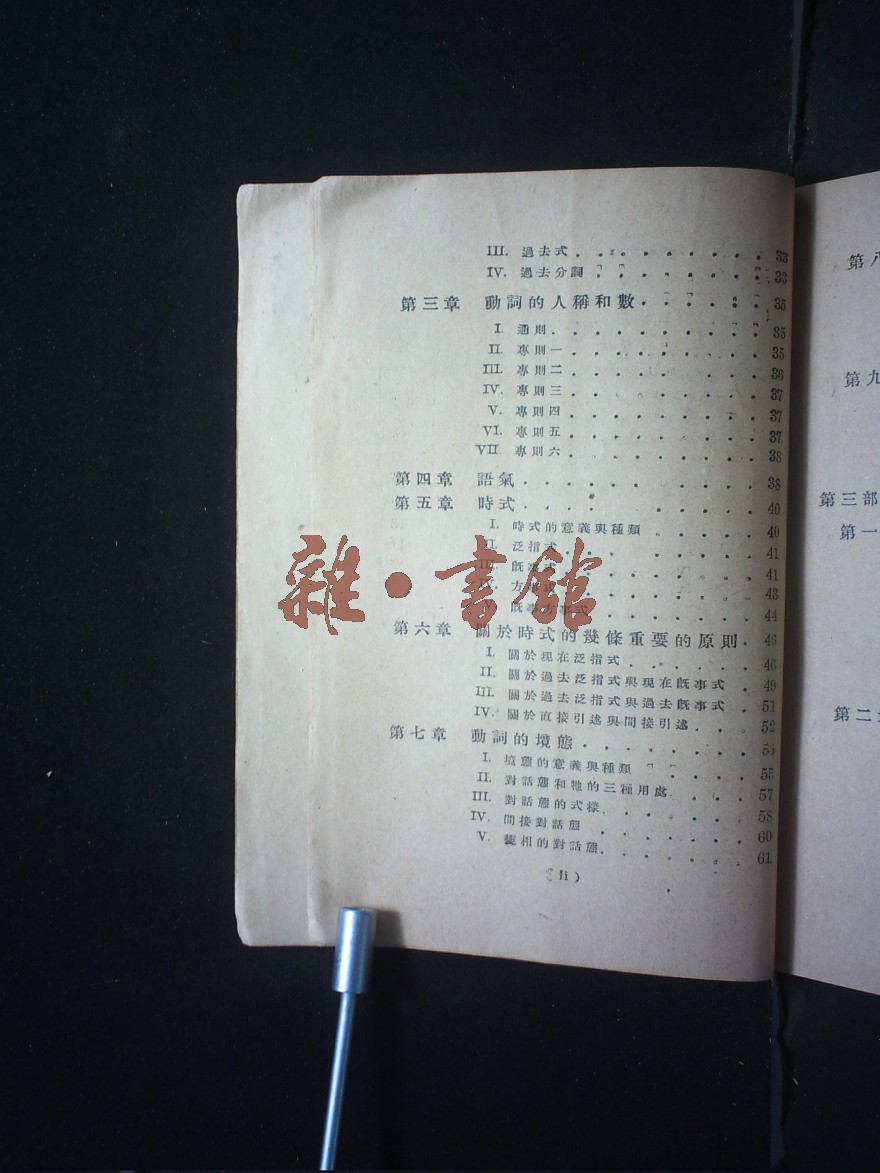 III. 過去式 33
IV. 過去分詞 33
第三章 動詞的人稱和數 35
I. 通則 35
II. 專則一 35
III. 專則二 36
IV. 專則三 37
V. 專則四 37
VI. 專則五 37
VII. 專則六 38
第四章 語氣 38
第五章 時式 40
I. 時式的意義與種類 40
II. 泛指式 41
III. 旣事式 41
IV. 方事式 43
V. 旣事方事式 44
第六章 關於時式的幾條重要的原則 46
I. 關於現在泛指式 46
II. 關於過去泛指式與現在旣事式 49
III. 關於過去泛指式與過去旣事式 51
IV. 關於直接引述與間接引述 52
第七章 動詞的境態 55
I. 境態的意義與種類 55
II. 對話態和牠的三種用處 57
III. 對話態的式樣 58
IV. 間接對話態 60
V. 相的對話態 61
ii )
雜·書館
第八
第九
第三部
第一
第二